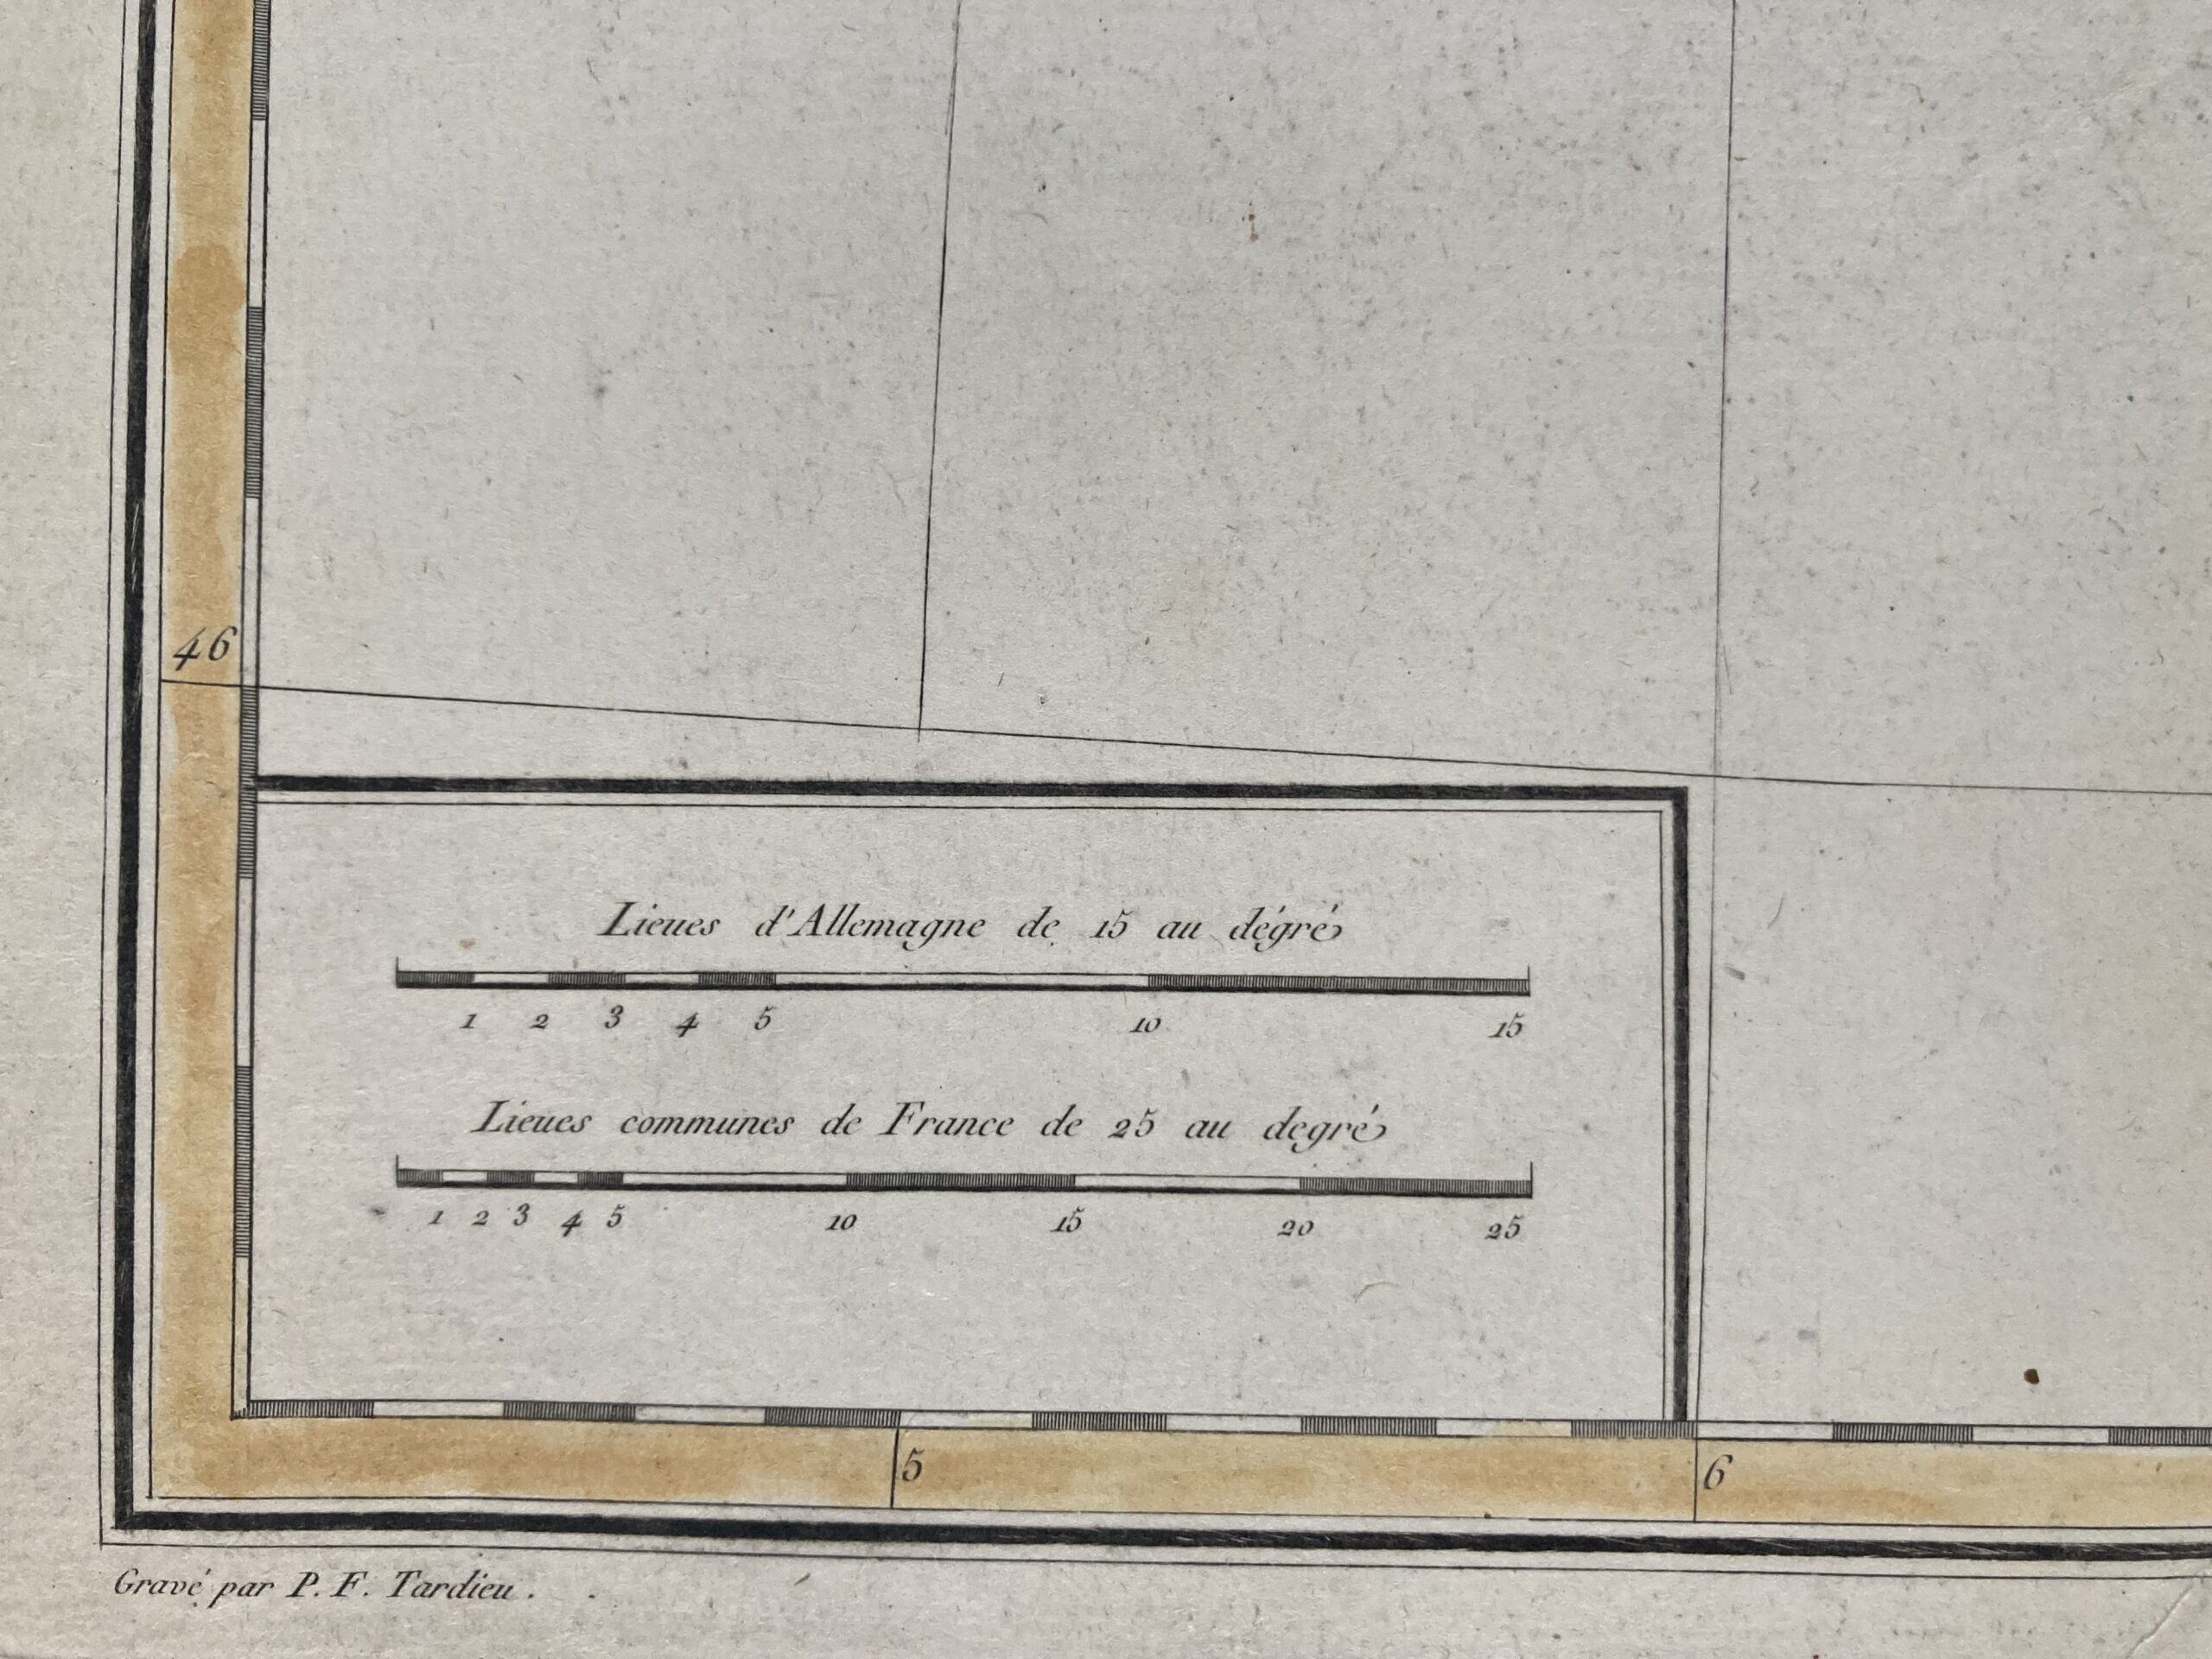 46
Lieues d'Allemagne de 15 au dégré
1 2 3 4 5 10 15
Lieues communes de France de 25 au degré
1 2 3 4 5 10 15 20 25
5 6
Gravé par P. F. Tardieu.